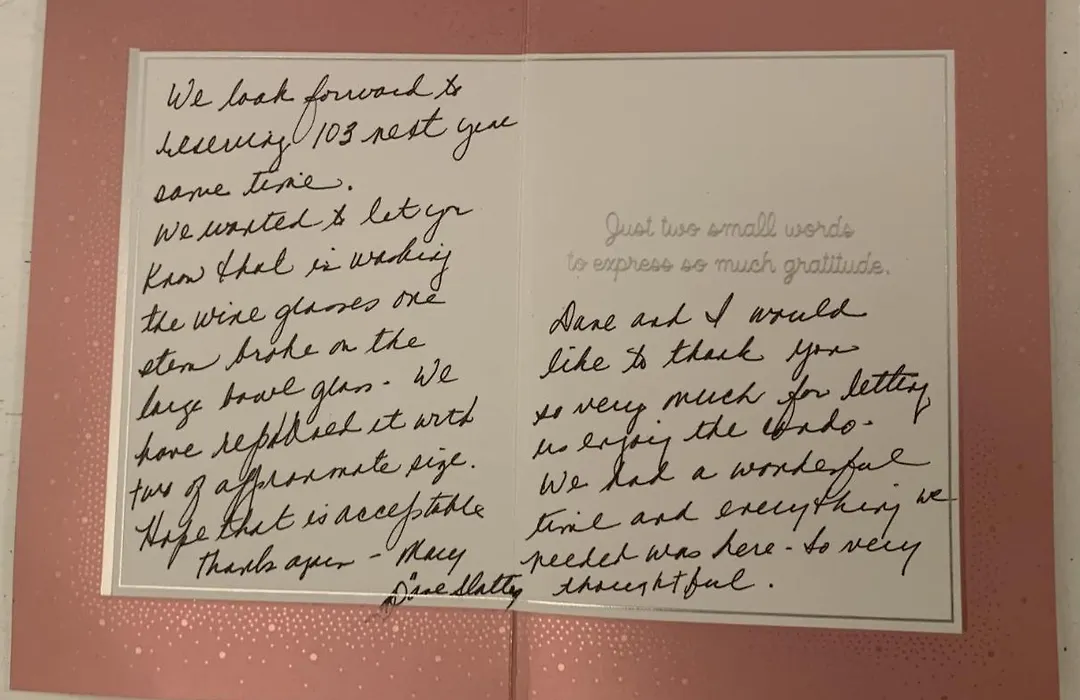 We look forward to
reserving 103 next year
same time.
We wanted to let you
know that in washing
the wine glasses one
stem broke on the
large bowl glass. We
have replaced it with
two of approximate size.
Hope that is acceptable
Thanks again - Mary
Dave Slattery
Just two small words
to express so much gratitude.
Dave and I would
like to thank you
so very much for letting
us enjoy the condo.
We had a wonderful
time and everything we
needed was here - so very
thoughtful.